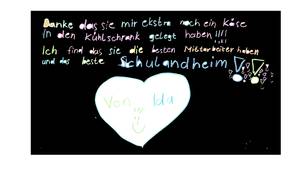 Danke das sie mir ekstra noch ein käse
in den Kühlschrank gelegt haben !!!!
Ich find das sie die besten Mitarbeiter haben
und das beste Schulandheim !!
Von Ida